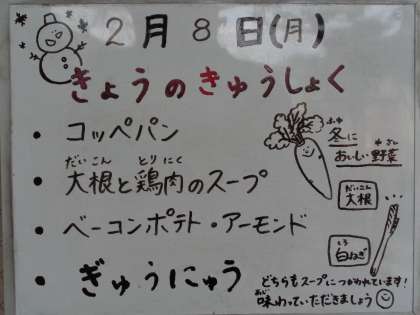 2月8日(月)
きょうのきゅうしょく
・コッペパン
・大根と鶏肉のスープ
だいこん とりにく
・ベーコンポテト・アーモンド
・ぎゅうにゅう
冬に
ふゆ
おいしい野菜
やさい
大根
だいこん
白ねぎ
しろ
どちらもスープにつかわれています!
味わっていただきましょう
あじ